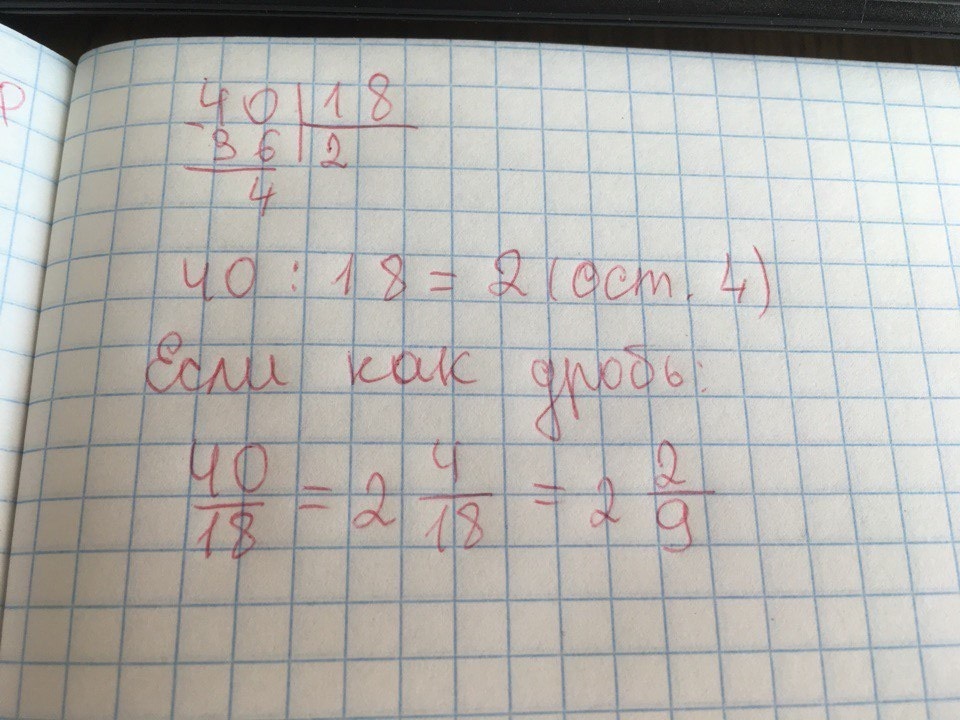 40|18
-36|2
4
40 : 18 = 2 (ост. 4)
Если как дробь:
40/18 = 2 4/18 = 2 2/9